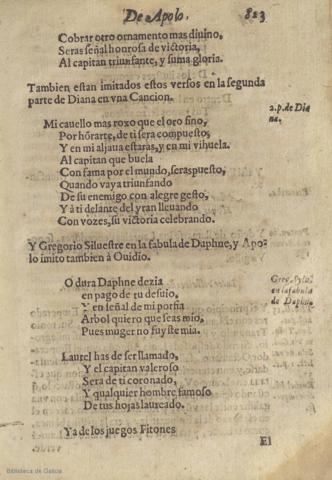 De Apolo. 823
Cobrar otro ornamento mas diuino,
Seras señal honrosa de victoria,
Al capitan triunfante, y suma gloria.
Tambien estan imitados estos versos en la segunda
parte de Diana en vna Cancion.
2.p. de Dia
na.
Mi cauello mas roxo que el oro fino,
Por hõrarte, de ti sera compuesto,
Y en mi aljaua estaras, y en mi vihuela.
Al capitan que buela
Con fama por el mundo, seras puesto,
Quando vaya triunfando
De su enemigo con alegre gesto,
Y à ti delante del yran lleuando
Con vozes, su victoria celebrando.
Y Gregorio Siluestre en la fabula de Daphne, y Apo-
lo imito tambien à Ouidio.
Greg. Sylu.
en la fabula
de Daphn.
O dura Daphne dezia
en pago de tu desuio,
Y en señal de mi porfia
Arbol quiero que seas mio,
Pues muger no fuyste mia.
Laurel has de ser llamado,
Y el capitan valeroso
Sera de ti coronado,
Y qualquier hombre famoso
De tus hojas laureado.
Ya de los juegos Fitones
El
Biblioteca de Galicia